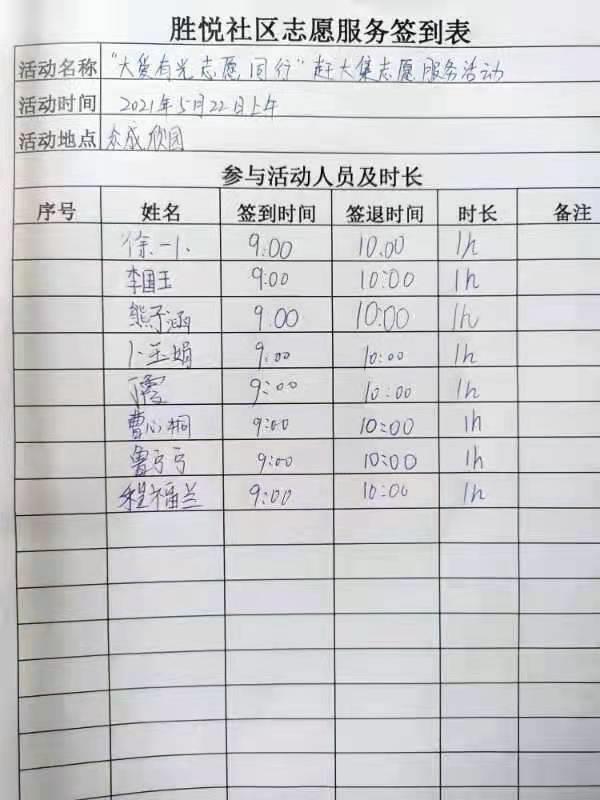 胜悦社区志愿服务签到表
活动名称 “大爱有光志愿同行”赶大集志愿服务活动
活动时间 2021年5月22日上午
活动地点 众成欣园
参与活动人员及时长
序号 姓名 签到时间 签退时间 时长 备注
徐一 9:00 10:00 1h
李国玉 9:00 10:00 1h
熊子涵 9:00 10:00 1h
卜玉娟 9:00 10:00 1h
9:00 10:00 1h
曹心桐 9:00 10:00 1h
鲁弓弓 9:00 10:00 1h
程福兰 9:00 10:00 1h